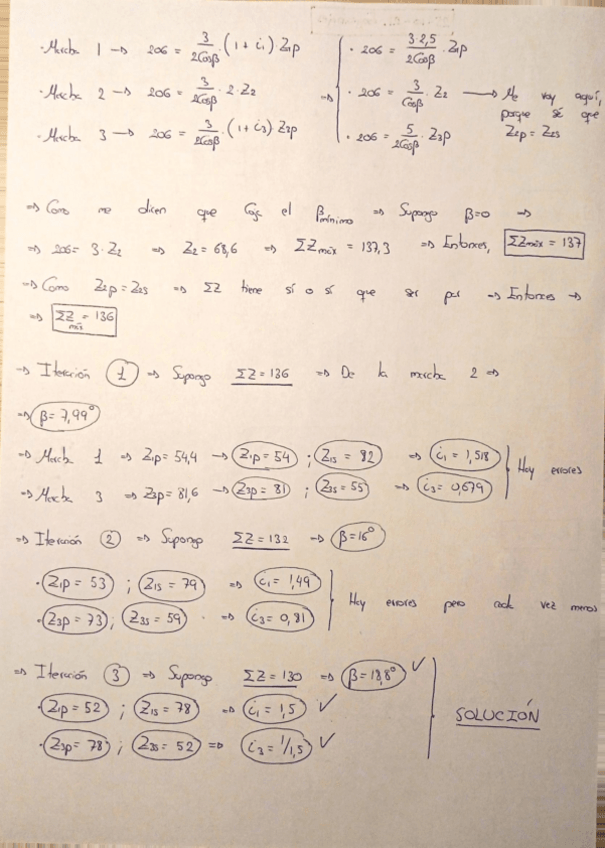 · Marcha 1 → 206 = 3/2Cosβ · (1 + i₁) · Z₁p
· Marcha 2 → 206 = 3/2Cosβ · 2 · Z₂
· Marcha 3 → 206 = 3/2Cosβ · (1 + i₃) Z₃p
⇒
· 206 = 3·2,5/2Cosβ · Z₁p
· 206 = 3/Cosβ · Z₂ → Me voy aquí, porque sé que Z₂p = Z₂s
· 206 = 5/2Cosβ · Z₃p
⇒ Como me dicen que coja el βmínimo ⇒ Supongo β=0 ⇒
⇒ 206 = 3·Z₂ ⇒ Z₂ = 68,6 ⇒ ΣZmáx = 137,3 ⇒ Entonces, ΣZmáx = 137
⇒ Como Z₂p = Z₂s ⇒ ΣZ tiene sí o sí que ser par ⇒ Entonces →
⇒ ΣZ máx = 136
⇒ Iteración 1 ⇒ Supongo ΣZ = 136 ⇒ De la marcha 2 ⇒
⇒ β = 7,99°
⇒ Marcha 1 ⇒ Z₁p = 54,4 → Z₁p = 54 ; Z₁s = 82 ⇒ i₁ = 1,518
⇒ Marcha 3 ⇒ Z₃p = 81,6 → Z₃p = 81 ; Z₃s = 55 ⇒ i₃ = 0,679
Hay errores
⇒ Iteración 2 ⇒ Supongo ΣZ = 132 ⇒ β = 16°
· Z₁p = 53 ; Z₁s = 79 ⇒ i₁ = 1,49
· Z₃p = 73 ; Z₃s = 59 · ⇒ i₃ = 0,81
Hay errores pero cada vez menos
⇒ Iteración 3 ⇒ Supongo ΣZ = 130 ⇒ β = 18,8° ✓
· Z₁p = 52 ; Z₁s = 78 ⇒ i₁ = 1,5 ✓
· Z₃p = 78 ; Z₃s = 52 ⇒ i₃ = 1/1,5 ✓
SOLUCIÓN